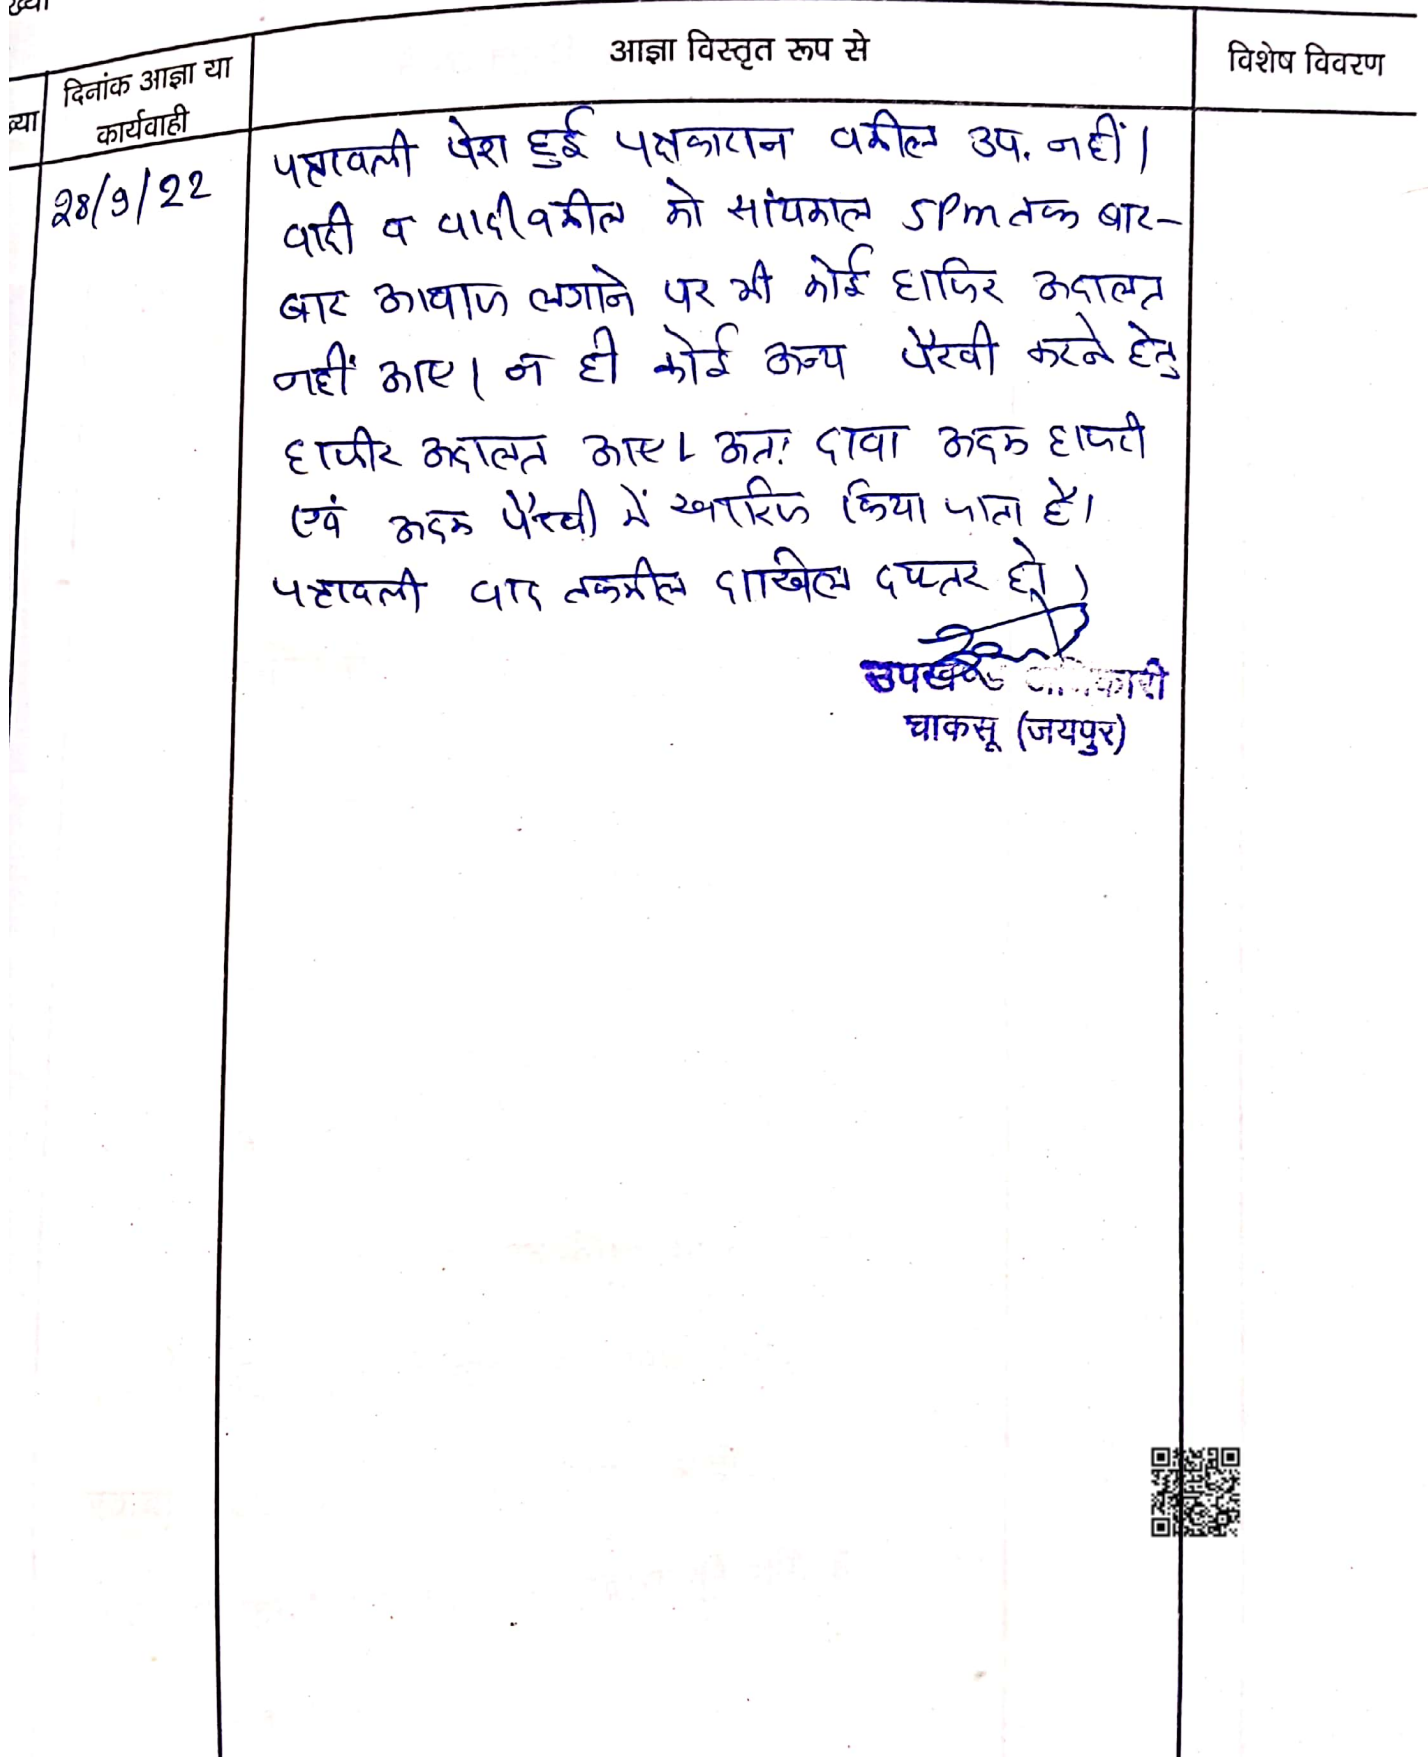 ख्या
दिनांक आज्ञा या
कार्यवाही
आज्ञा विस्तृत रूप से
विशेष विवरण
28/9/22
पत्रावली पेश हुई पक्षकारान वकील उप. नहीं।
वादी व वादी वकील को सांयकाल 5Pm तक बार-
बार आवाज लगाने पर भी कोई हाजिर अदालत
नहीं आए। न ही कोई अन्य पैरवी करने हेतु
हाजीर अदालत आए। अतः दावा अदम हाजरी
एवं अदम पैरवी में खारिज किया जाता है।
पत्रावली बाद तकमील दाखिल दफ्तर हो।
उपखण्ड अधिकारी
चाकसू (जयपुर)